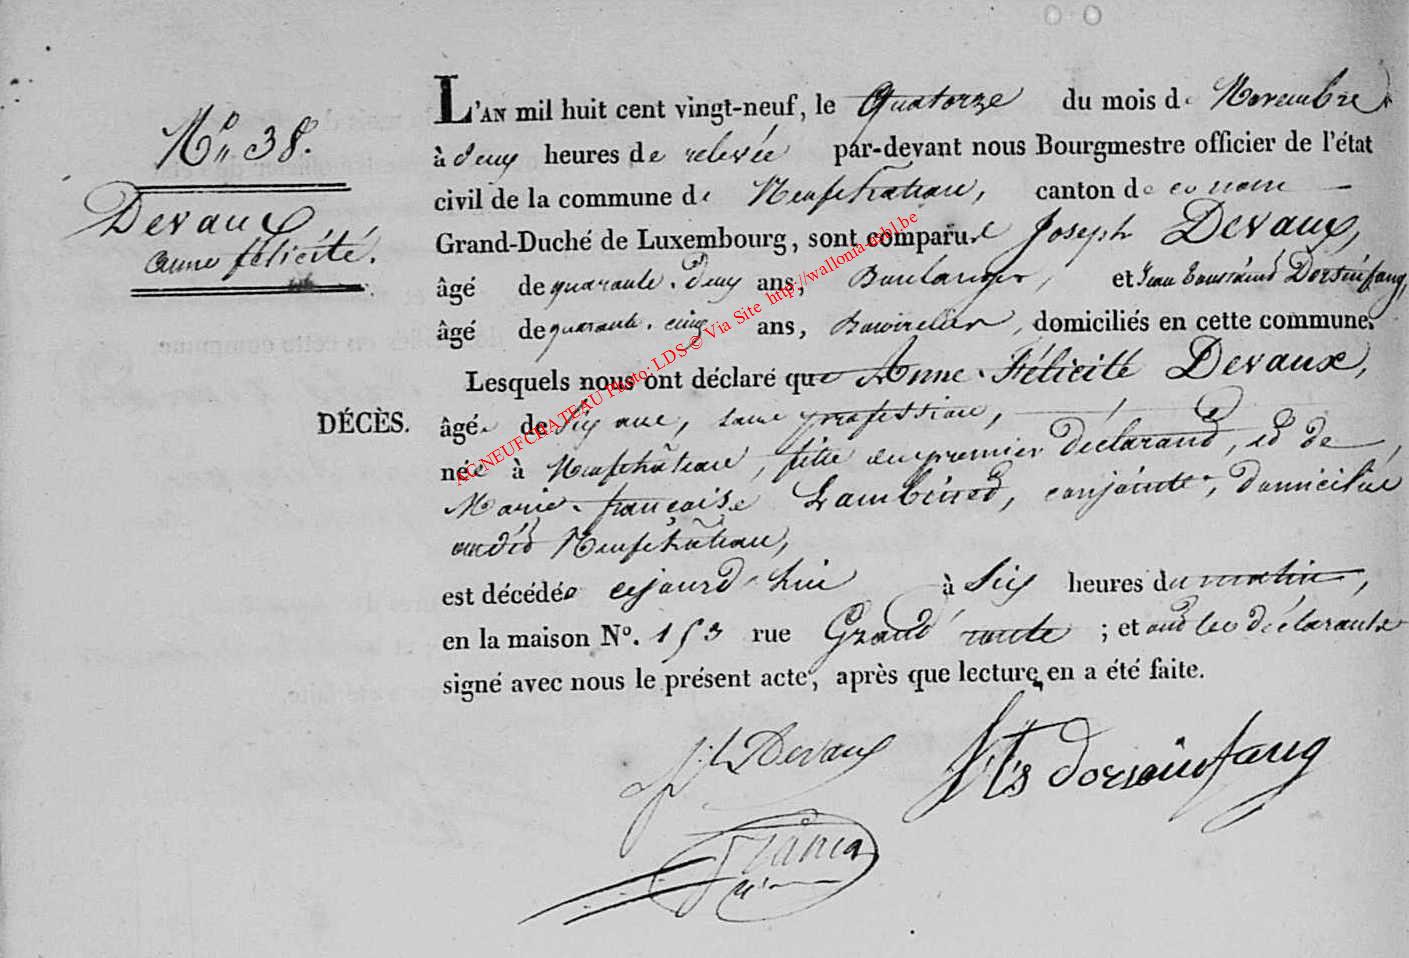 N° 38.
Devaux
anne félicité.
DÉCÈS.
L'AN mil huit cent vingt-neuf, le Quatorze du mois de Novembre
à deux heures de relevée par-devant nous Bourgmestre officier de l'état
civil de la commune de Neufchateau, canton de ce nom
Grand-Duché de Luxembourg, sont comparu Joseph Devaux,
âgé de quarante-deux ans, Boulanger, et Jean Toussaint Dorsinfang,
âgé de quarante-cinq ans, domiciliés en cette commune.
Lesquels nous ont déclaré que Anne-Félicité Devaux,
âgée de six ans, sans profession,
née à Neufchâteau, fille du premier déclarant, et de
Marie-françoise Lambinet, conjointe, domiciliée
audit Neufchâteau,
est décédée cejourd'hui à Six heures du matin,
en la maison N°. 153 rue Grand route ; et ont les déclarants
signé avec nous le présent acte, après que lecture en a été faite.
Devaux dorsinfang
AGNEUFCHATEAU Photo: LDS © Via Site http://wallonia-asbl.be